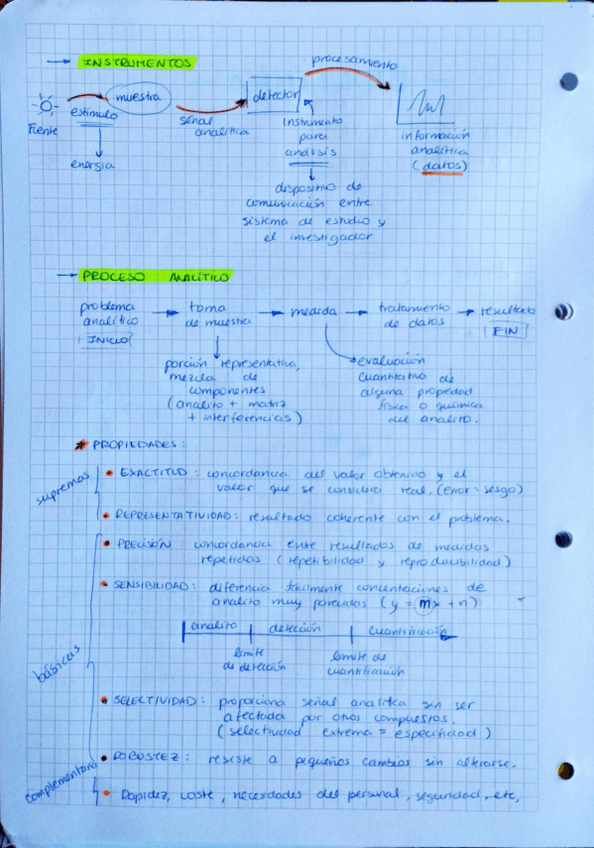 → INSTRUMENTOS
procesamiento
muestra
detector
Fuente
estímulo
señal
analítica
energía
instrumento
para
análisis
información
analítica
(datos)
dispositivo de
comunicación entre
sistema de estudio y
el investigador
→ PROCESO ANALÍTICO
problema → toma → medida → tratamiento → resultado
analítico de muestra de datos FIN
INICIO
porción representativa,
mezcla de
componentes
(analito + matriz
+ interferencias)
evaluación
cuantitativa de
alguna propiedad
física o química
del analito.
* PROPIEDADES:
supremas
• EXACTITUD: concordancia del valor obtenido y el
valor que se considera real. (error = sesgo)
• REPRESENTATIVIDAD: resultado coherente con el problema.
básicas
• PRECISÓN: concordancia entre resultados de medidas
repetidas (repetibilidad y reproducibilidad)
• SENSIBILIDAD: diferencia fácilmente concentaciones de
analito muy parecidas (y = mx + n)
analito detección cuantificación
límite
de detección
límite de
cuantificación
• SELECTIVIDAD: proporciona señal analítica sin ser
afectada por otros compuestos.
(selectividad extrema = especifidad)
• ROBUSTEZ: resiste a pequeños cambios sin alterarse.
complementarias
• Rapidez, coste, necesidades del personal, seguridad, etc,